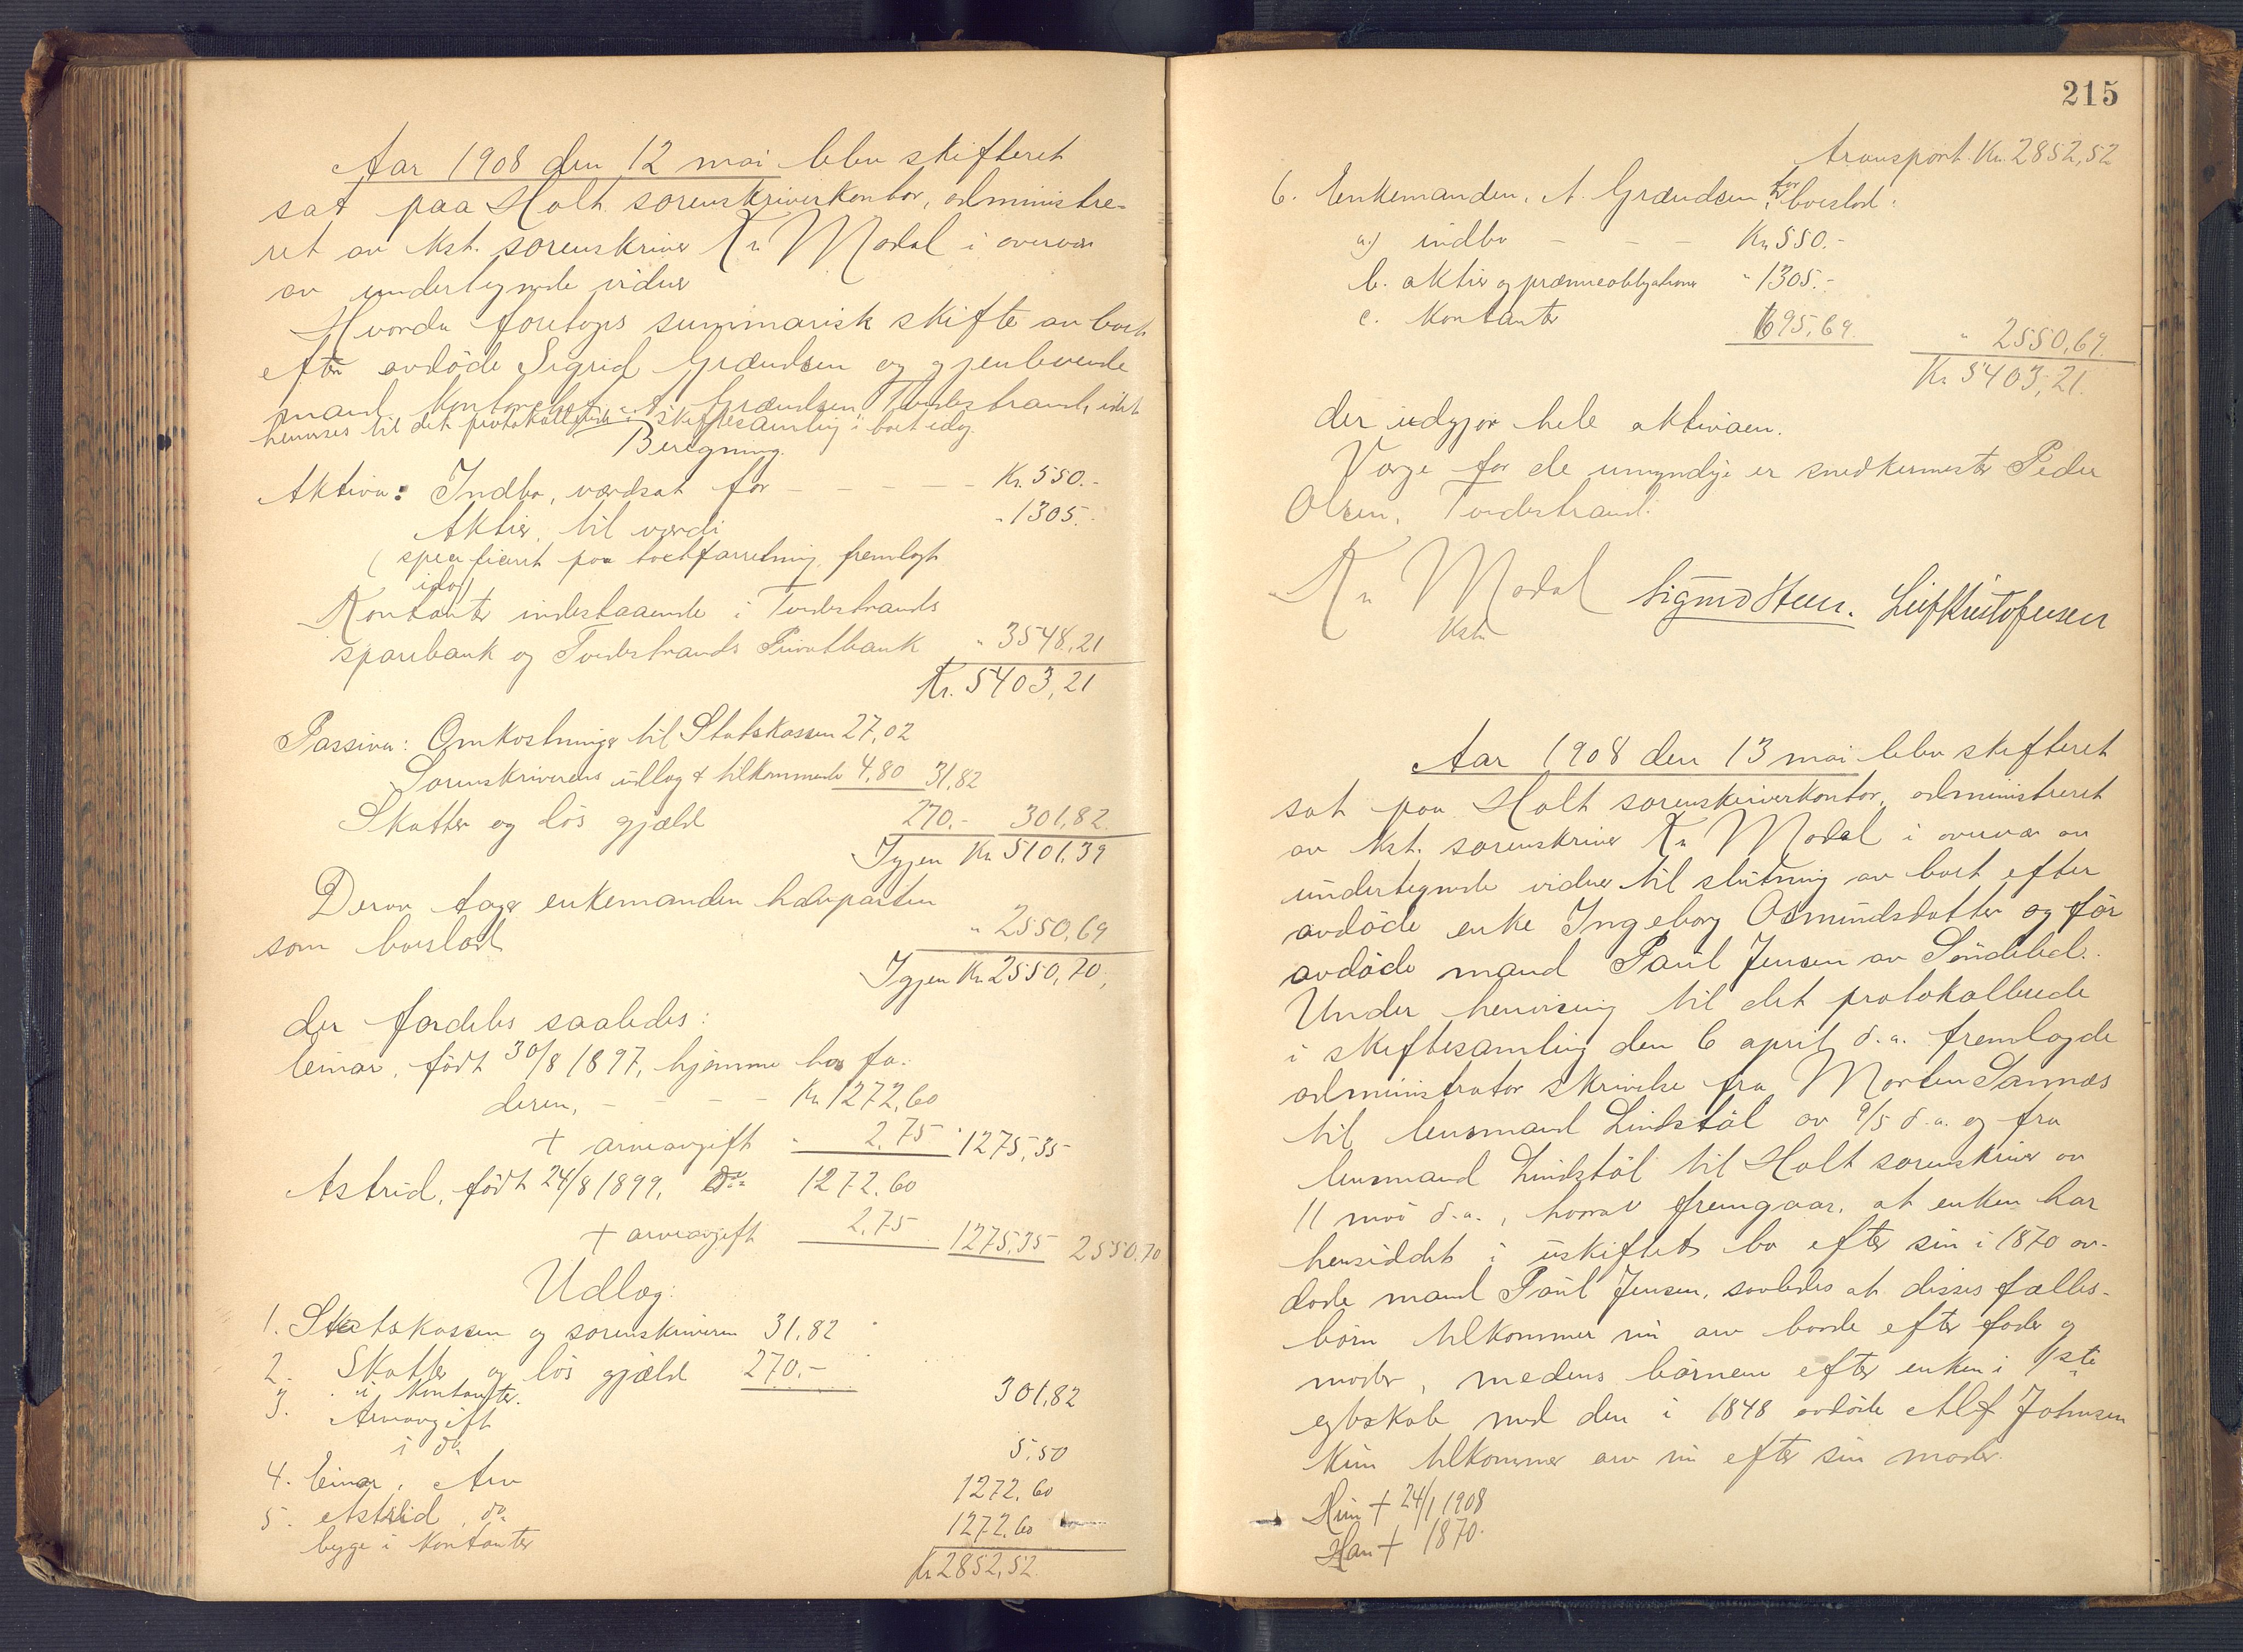 Aar 1908 den 12 mai blev skifteret
sat paa Holt sorenskriverkontor, administre-
ret av kst. sorenskriver Kr Modal i overvær
av undertegnede vidner
Hvorda foretoges summarisk skifte av boet
efter avdøde Sigrid Grændsen og gjenlevende
mand, kontorchef A. Grændsen, Tvedestrand, idet
henvises til det protokollerede i skiftesamling i boet idag.
Beregning.
Aktiva: Indbo, værdsat for – – – – – Kr. 550.-
Aktier, til værdi " 1305.-
(specificeret paa boetforretning, fremlagt
idag)
Kontanter indestaaende i Tvedestrands
sparebank og Tvedestrands Privatbank " 3548,21
Kr. 5403,21
Passiva: Omkostninger til Statskassen 27,02
Sorenskriverens utlæg & tilkommende 4,80 31,82
Skatter og løs gjæld 270.- 301,82
Igjen Kr. 5101,39
Derav tager enkemanden halvparten
som boeslod " 2550,69
Igjen Kr. 2550,70,
der fordeles saaledes:
Einar, født 30/8 1897, hjemme hos fa-
deren, – – – – Kr. 1272,60
+ arveavgift " 2,75 " 1275,35
Astrid, født 24/8 1899, do 1272,60
+ arveavgift 2,75 1275,35 2550,70
Udlæg:
1. Statskassen og sorenskriveren 31,82
2. Skatter og løs gjæld 270.-
i kontanter. 301,82
3. Arveavgift
i do 5,50
4. Einar, Arv 1272,60
5. Astrid, do 1272,60
begge i kontanter
Kr. 2852,52.
215
Transport. Kr. 2852,52
6. Enkemanden, A. Grændsen for boeslod:
a.) indbo – – – Kr. 550.-
b. aktier og præmieobligationer " 1305.-
c. Kontanter 695,69 " 2550,69.
Kr. 5403,21.
der udgjør hele aktivaen.
Værge for de umyndige er snedkermester Peder
Olsen, Tvedestrand.
Kr Modal Sigmd Steen. Leif Kristofersen
kst.
Aar 1908 den 13 mai blev skifteret
sat paa Holt sorenskriverkontor, administreret
av kst. sorenskriver Kr Modal i overvær av
undertegnede vidner til slutning av boet efter
avdøde enke Ingeborg Osmundsdatter og før
avdøde mand Paul Jensen av Søndeled.
Under henvisning til det protokollerede
i skiftesamling den 6 april d.a. fremlagde
administrator skrivelse fra Morten Sannæs
til lensmand Lindstøl av 9/5 d.a. og fra
lensmand Lindstøl til Holt sorenskriver av
11 mai d.a., hvorav fremgaar, at enken har
hensiddet i uskiftet bo efter sin i 1870 av-
døde mand Paul Jensen, saaledes at disses fælles-
børn tilkommer nu arv baade efter fader og
moder, medens børnene efter enken i 1ste
egteskab med den i 1848 avdøde Alef Johnsen
kun tilkommer arv nu efter sin moder.
Hun + 24/1 1908
Han + 1870.